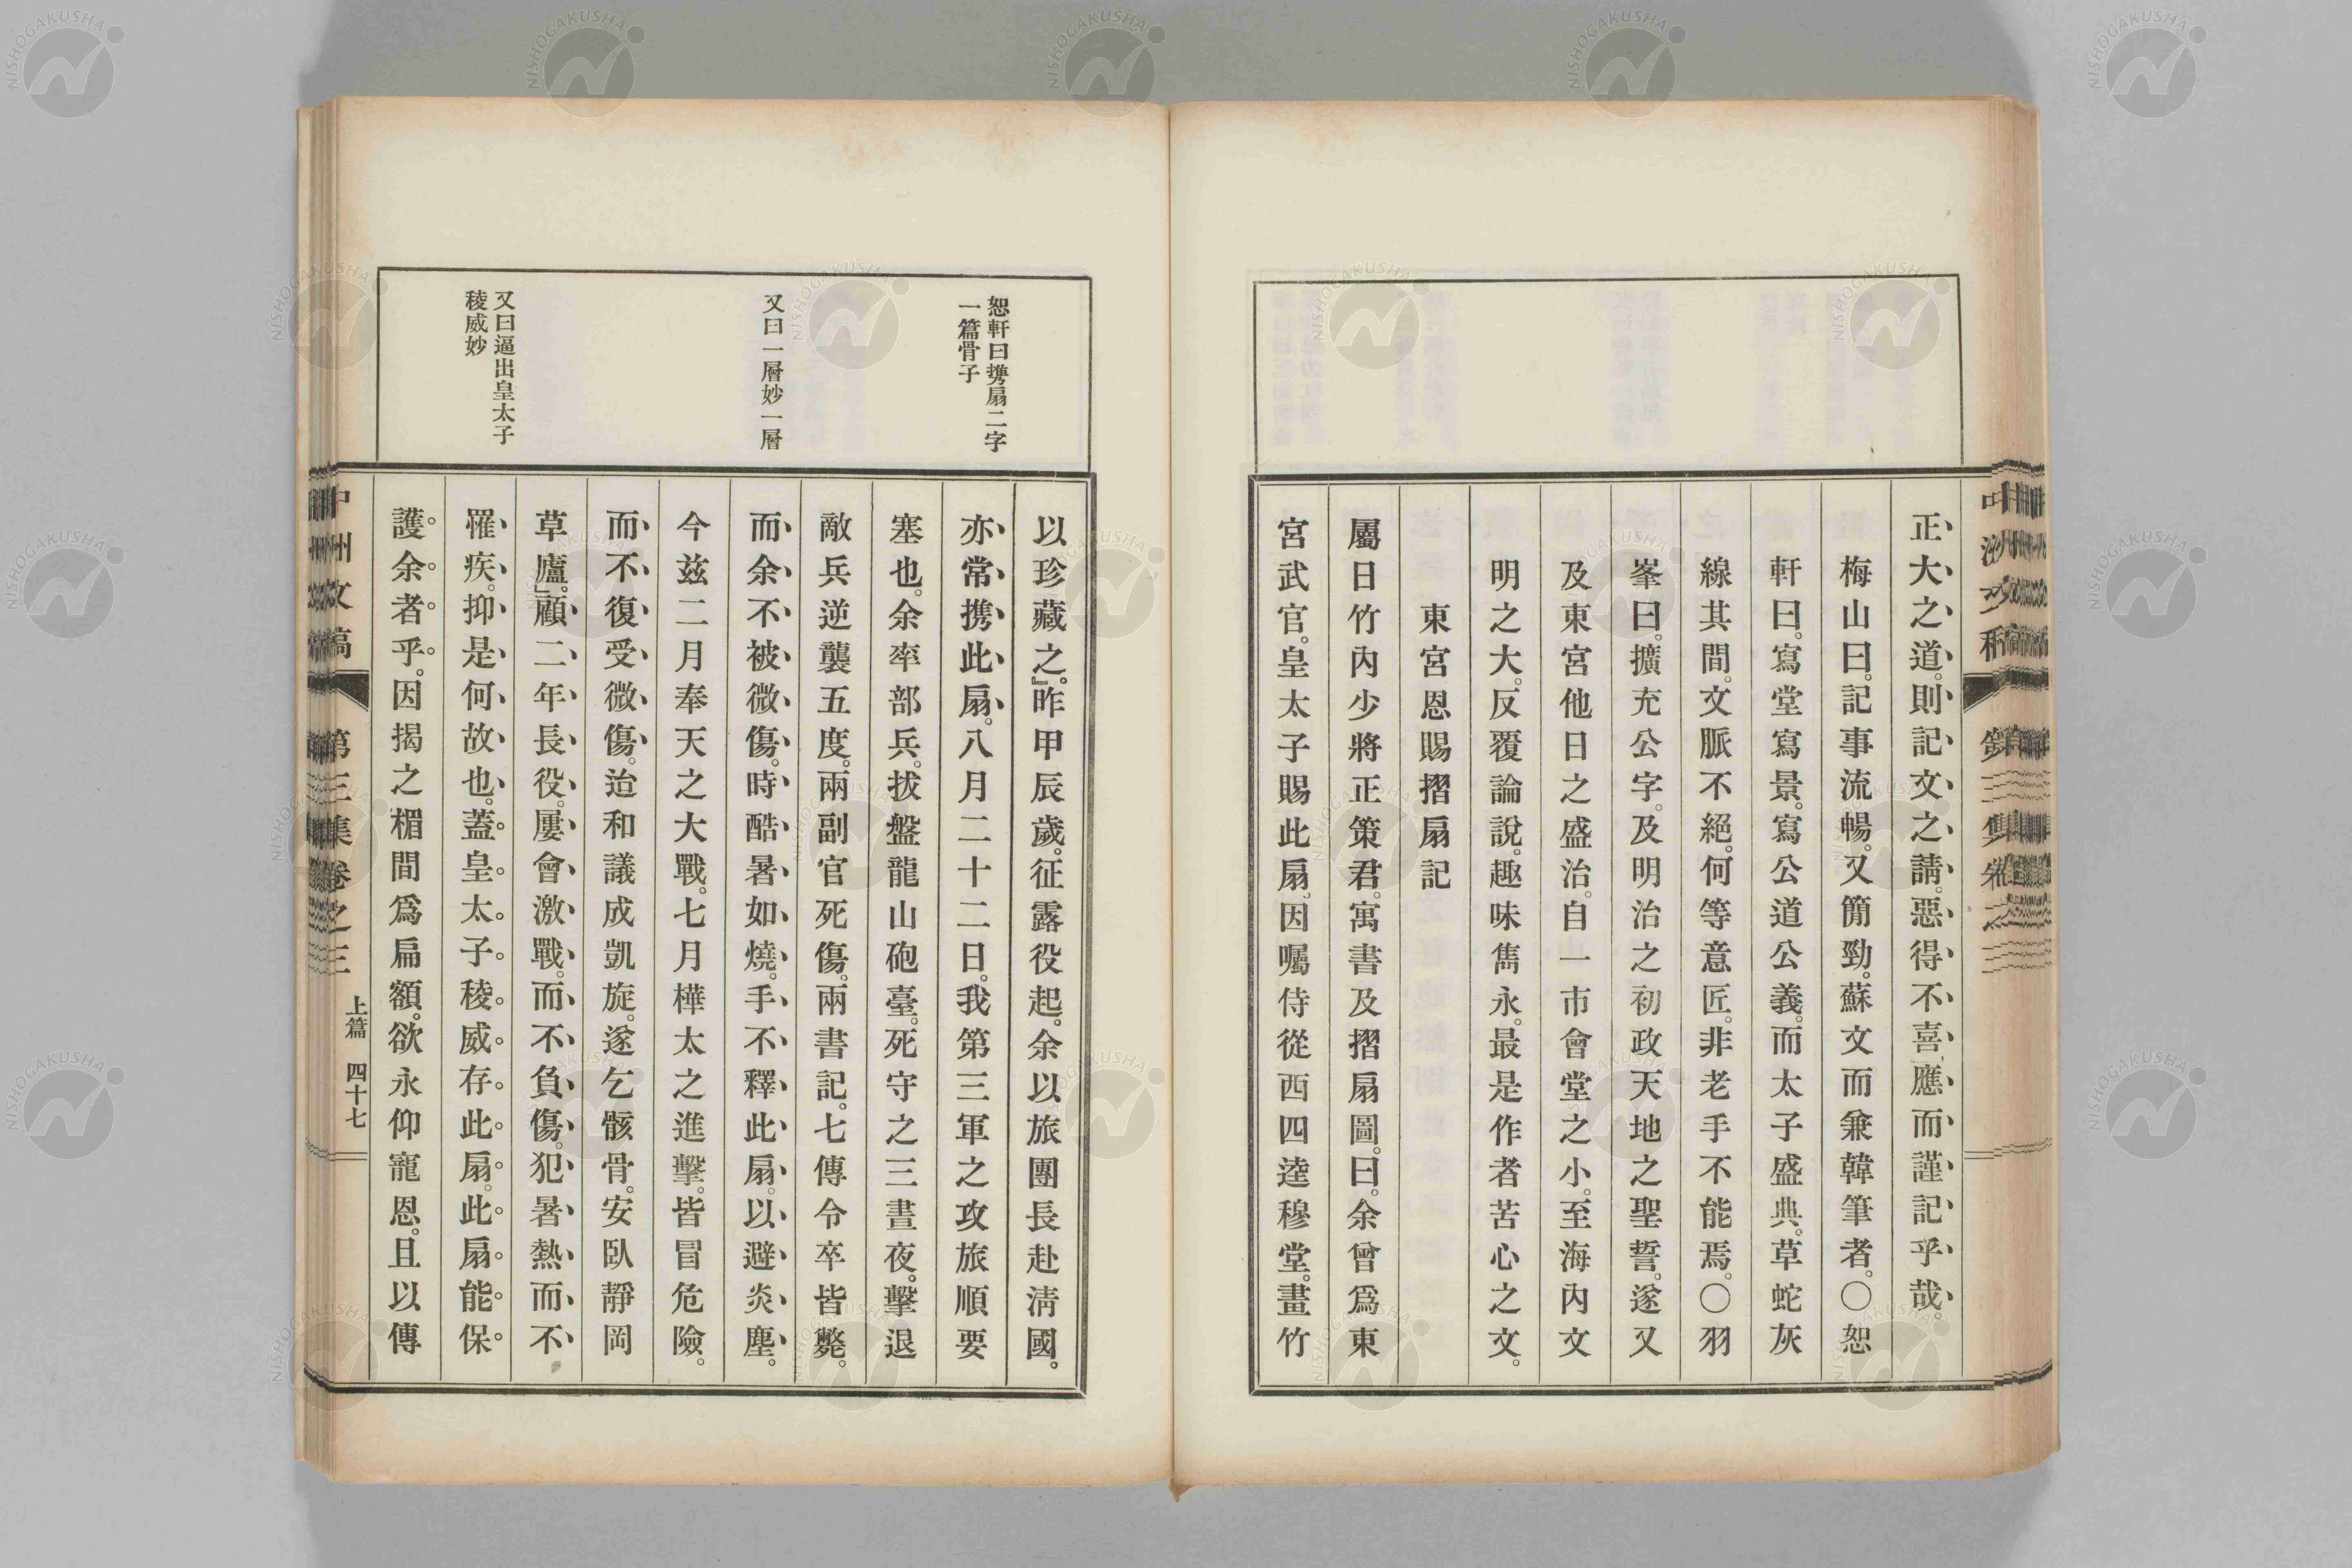 正大之道。則記文之請。惡得不喜、應而謹記乎哉。
梅山曰。記事流暢。又簡勁。蘇文而兼韓筆者。〇恕
軒曰。寫堂寫景。寫公道公義。而太子盛典。草蛇灰
線其間。文脈不絕。何等意匠。非老手不能焉。〇羽
峯曰。擴充公字。及明治之初政、天地之聖誓。遂又
及東宮他日之盛治。自一市會堂之小。至海內文
明之大。反覆論說。趣味雋永。最是作者苦心之文。
東宮恩賜摺扇記
屬日竹內少將正策君。寓書及摺扇圖。曰。余曾爲東
宮武官。皇太子賜此扇。因囑侍從西四逵穆堂。畫竹
恕軒曰携扇二字
一篇骨子
又曰一層妙一層
又曰逼出皇太子
稜威妙
以珍藏之。』昨甲辰歲。征露役起。余以旅團長赴淸國。
亦常携此扇。八月二十二日。我第三軍之攻旅順要
塞也。余率部兵。拔盤龍山砲臺。死守之三晝夜。擊退
敵兵逆襲五度。兩副官死傷。兩書記。七傳令卒皆斃。
而余不被微傷。時酷暑如燒。手不釋此扇。以避炎塵。
今茲二月奉天之大戰。七月樺太之進擊。皆冒危險。
而不復受微傷。迨和議成凱旋。遂乞骸骨。安臥靜岡
草廬。』顧二年長役。屢會激戰。而不負傷。犯暑熱而不
罹疾。抑是何故也。蓋皇太子稜威存此扇。此扇能保
護余者乎。因揭之楣間爲扁額。欲永仰寵恩。且以傳
中洲文稿 第三集卷之三 上篇 四十七